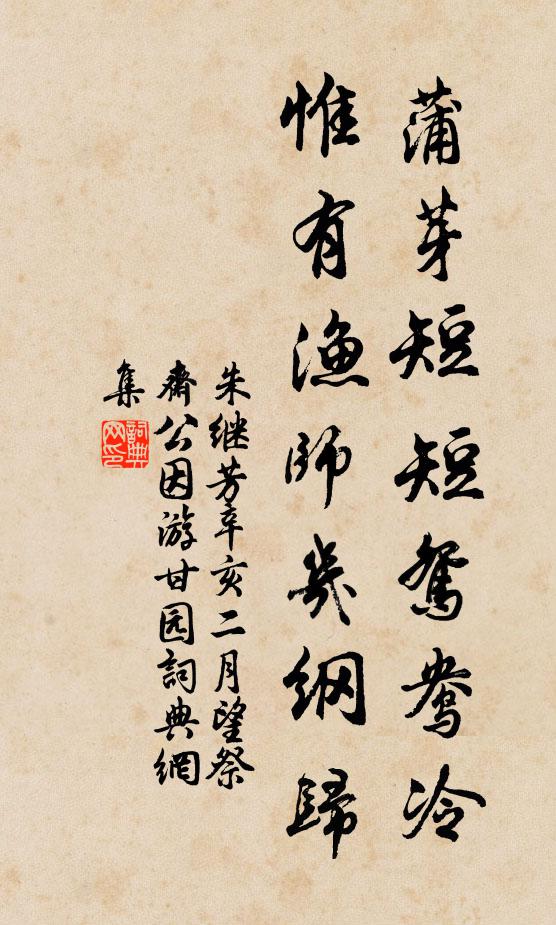 蒲芽短短鸳鸯冷
惟有渔师几纲歸
朱继芳辛亥二月望祭
齋公因游甘园詞典網
集
詞典
网印